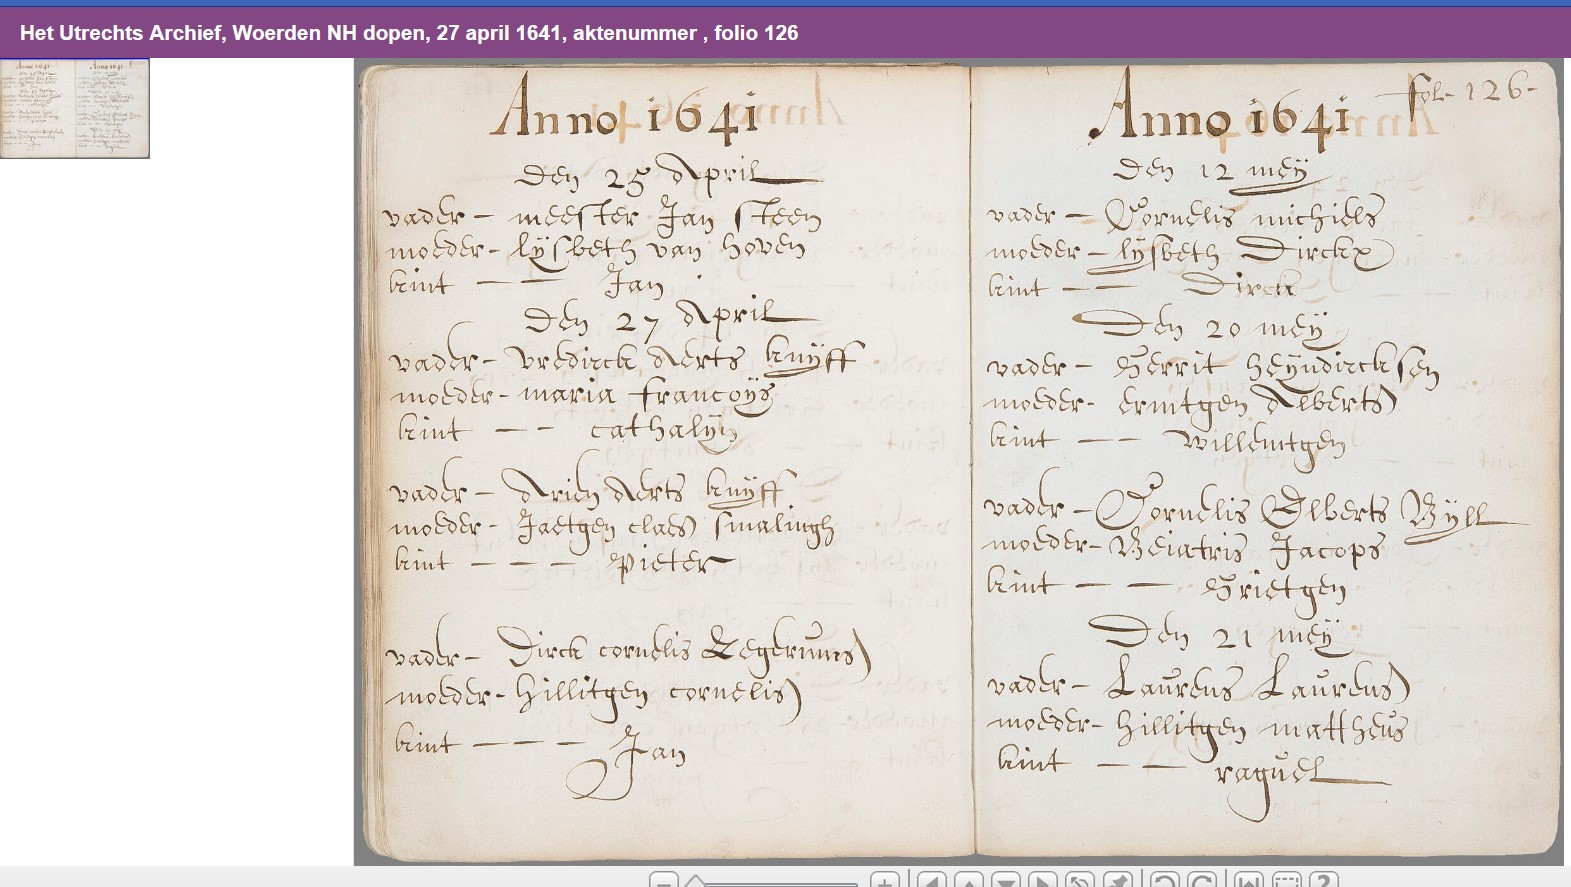 Het Utrechts Archief, Woerden NH dopen, 27 april 1641, aktenummer , folio 126
Anno 1641
Den 25 April
vader - meester Jan steen
moeder - lÿsbeth van hoven
kint - - Jan
Den 27 April
vader - vredirck Aerts knÿff
moeder - maria francoÿs
kint - - cathalÿn
vader - Arien Aerts knÿff
moeder - Jaetgen claes smalingh
kint - - - Pieter
vader - Dirck cornelis
moeder - hillitgen cornelis
kint - - - Jan
fol. 126.
Anno 1641
Den 12 meÿ
vader - Cornelis michiels
moeder - lÿsbeth Dirckx
kint - - Dirck
Den 20 meÿ
vader - Gerrit heÿndircksen
moeder - ermtgen Alberts
kint - - willemtgen
vader - Cornelis Elberts Bÿll
moeder - Beiatris Jacops
kint - - Grietgen
Den 21 meÿ
vader - Laurens Laurens
moeder - hillitgen mattheus
kint - - raguel